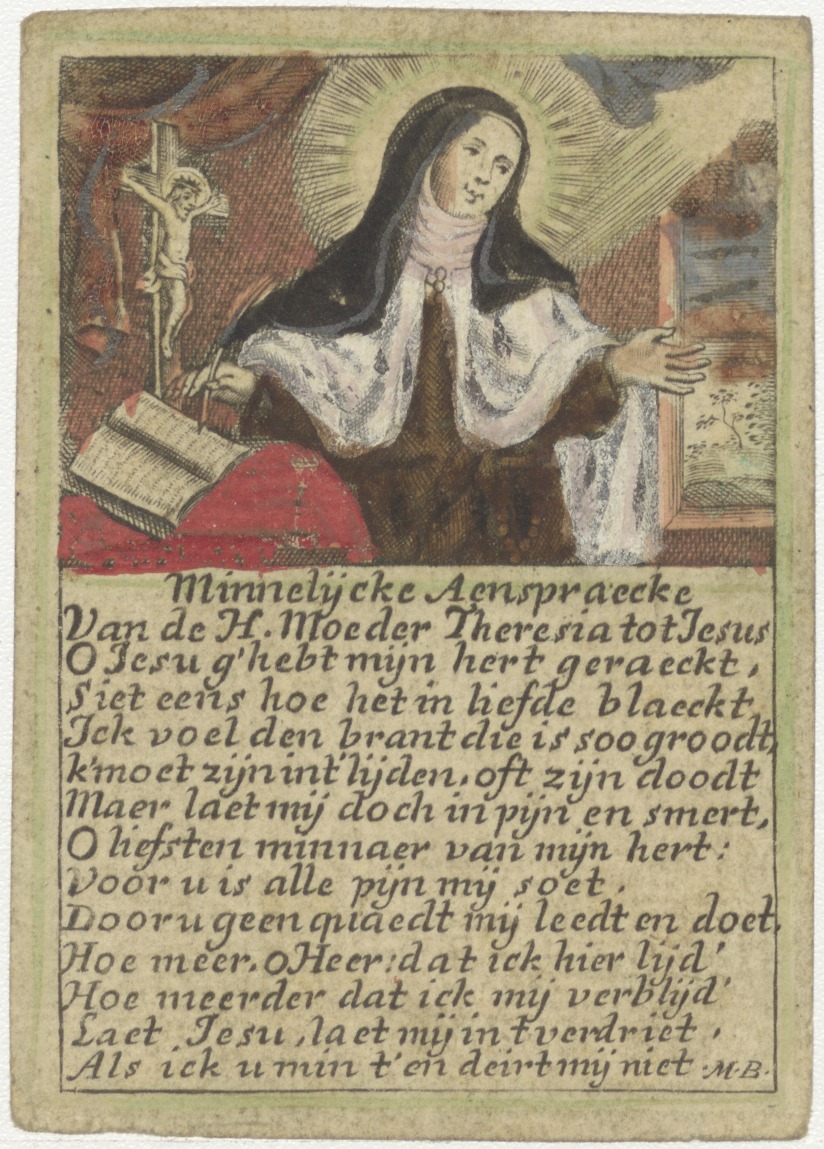 Minnelijcke Aenspraecke
Van de H. Moeder Theresia tot Jesus
O Jesu g'hebt mijn hert geraeckt,
Siet eens hoe het in liefde blaeckt,
Ick voel den brant die is soo groodt,
k'moet zijn int' lijden, oft zijn doodt
Maer laet mij doch in pijn en smert,
O liefsten minnaer van mijn hert:
Voor u is alle pijn mij soet,
Door u geen quaedt mij leedt en doet.
Hoe meer, o Heer: dat ick hier lijd'
Hoe meerder dat ick mij verblijd'
Laet Jesu, laet mij in t verdriet,
Als ick u min t'en deirt mij niet M.B.